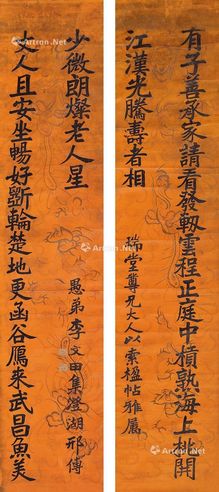 有子善承家請看發軔雲程正庭中孰海上桃開
江漢光騰壽者相
瑞堂尊兄大人以索楹帖雅屬
大人且安坐暢好斲輪楚地更函谷鴈來武昌魚美
少微朗燦老人星
愚弟李文田集澄湖邢傅
Artron.Net
Artron.Net
Artron.Net
Artron.Net